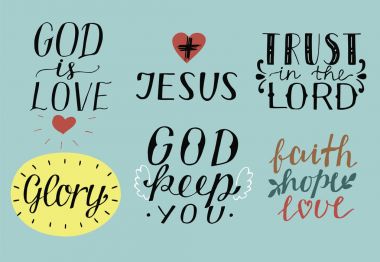 GOD
is
LOVE
JESUS
TRUST
in the
LORD
Glory
GOD
keep
· YOU ·
faith
hope
love